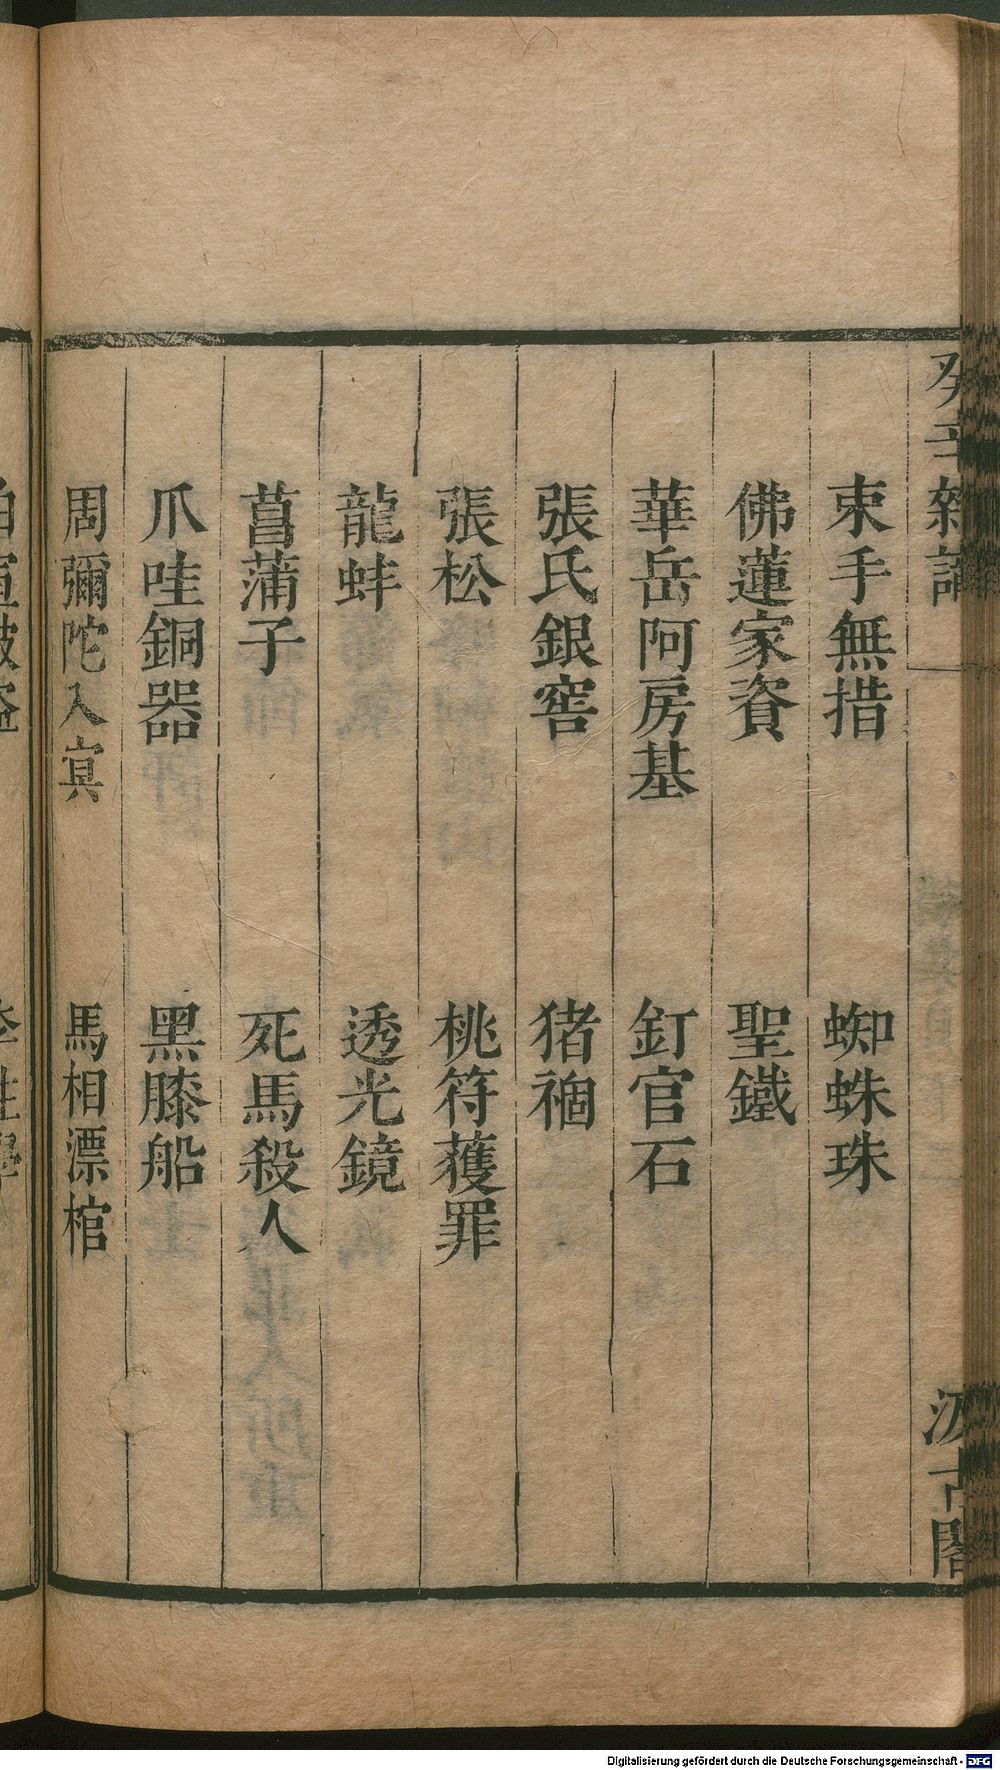 癸辛雜識
汲古閣
束手無措　蜘蛛珠
佛蓮家資　聖鐵
華岳阿房基　釘官石
張氏銀窖　猪禍
張松　桃符獲罪
龍蚌　透光鏡
菖蒲子　死馬殺人
爪哇銅器　黑膝船
周彌陀入寘　馬相漂棺
Digitalisierung gefördert durch die Deutsche Forschungsgemeinschaft - DFG